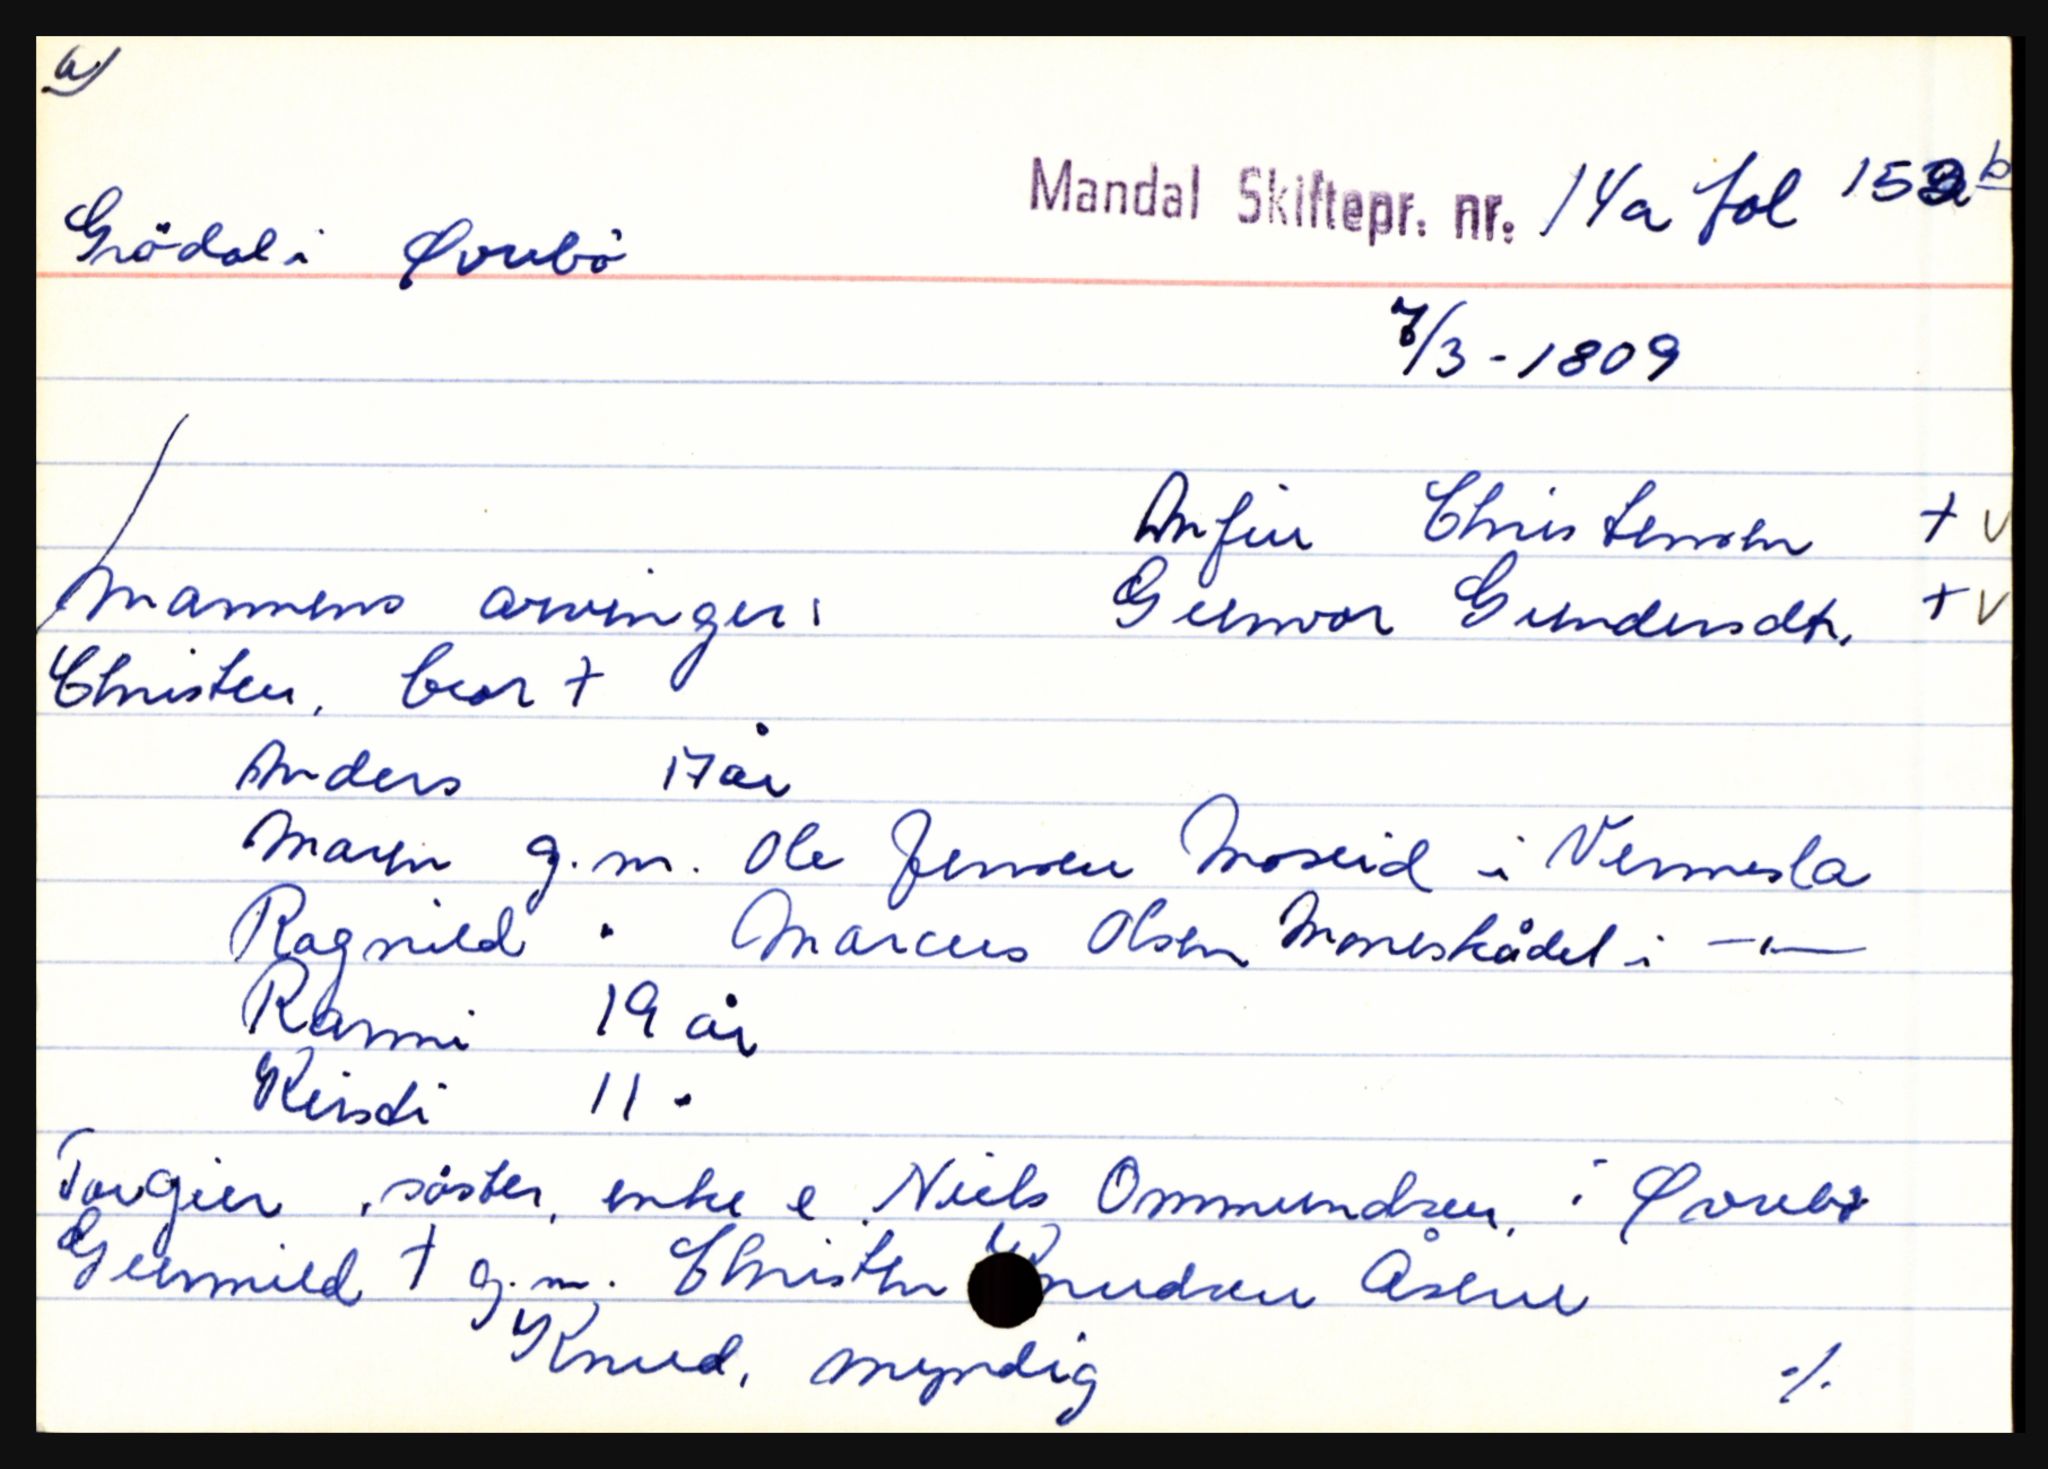 a)
Mandal Skiftepr. nr. 14a fol 152b
Grödal i Øvrebö
7/3-1809
Anfin Christensen + v
Mannens arvinger: Gunvor Gundersdtr. + v
Christen, bror +
Anders 17 år
Maren g.m. Ole Jensen Moseid i Vennesla
Ragnild " Marcus Olsen Moneskådel i -"-
Ranni 19 år
Kirsti 11 "
Torgier, söster, enke e. Niels Ommundsen, i Øvrebö
Gunnild + g.m. Christen Knudsen Åsen
Knud, myndig
./.